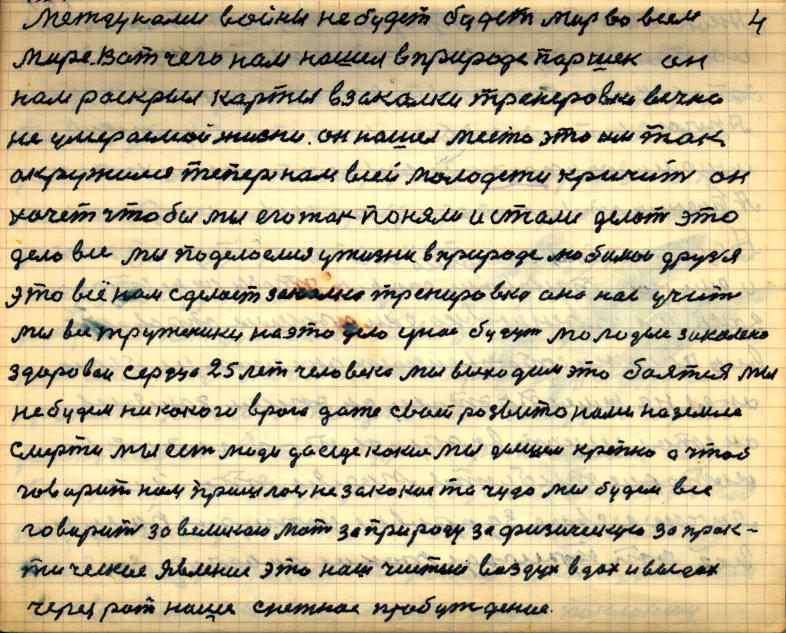 Между нами войны небудет будет мир во всем 4
мире. Вот чего нам нашел вприроде паршек он
нам раскрыл карты взакалки тренеровки вечно
не умераемой жизни. он нашел место это им так
окружился теперь нам всей молодети кричит он
хочет чтобы мы его так поняли и стали делат это
дело все мы поделоемся ужизни вприроде любимои друзя
это всё нам сделает закалка тренировка она нас учит
мы все труженики наэто дело унас будут молодые закалено
здоровои сердца 25 лет человека мы выходим это боятся мы
небудем никокого врага даже свой розвито нами на земле
смерти мы ест люди да еще какие мы дышем крепко а чтоб
говорит нам пришлос не за какое та чудо мы будем все
говорит за великою мат за природу за физическую за прак-
тическое явление это наш чистый воздух вдох и выдох
через рот наше снежное пробуждение.